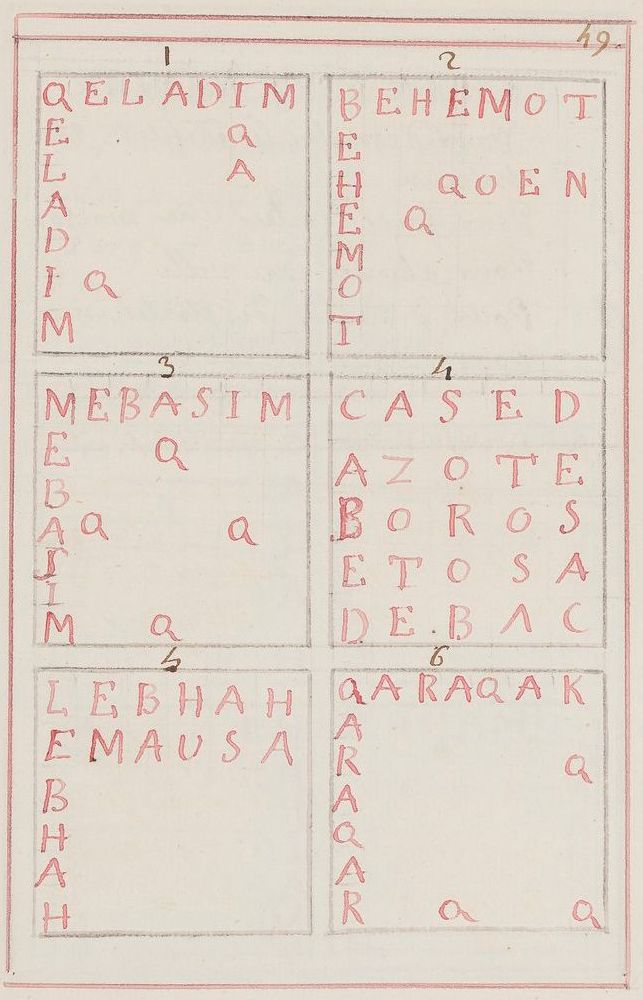 49.
1
QELADIM
E Q
L A
A
D
I Q
M
2
BEHEMOT
E
H QOEN
E Q
M
O
T
3
MEBASIM
E Q
B
A Q Q
S
I
M Q
4
CASED
AZOTE
BOROS
ETOSA
DEBAC
5
LEBHAH
EMAUSA
B
H
A
H
6
QARAQAK
A
R Q
A
Q
A
R Q Q